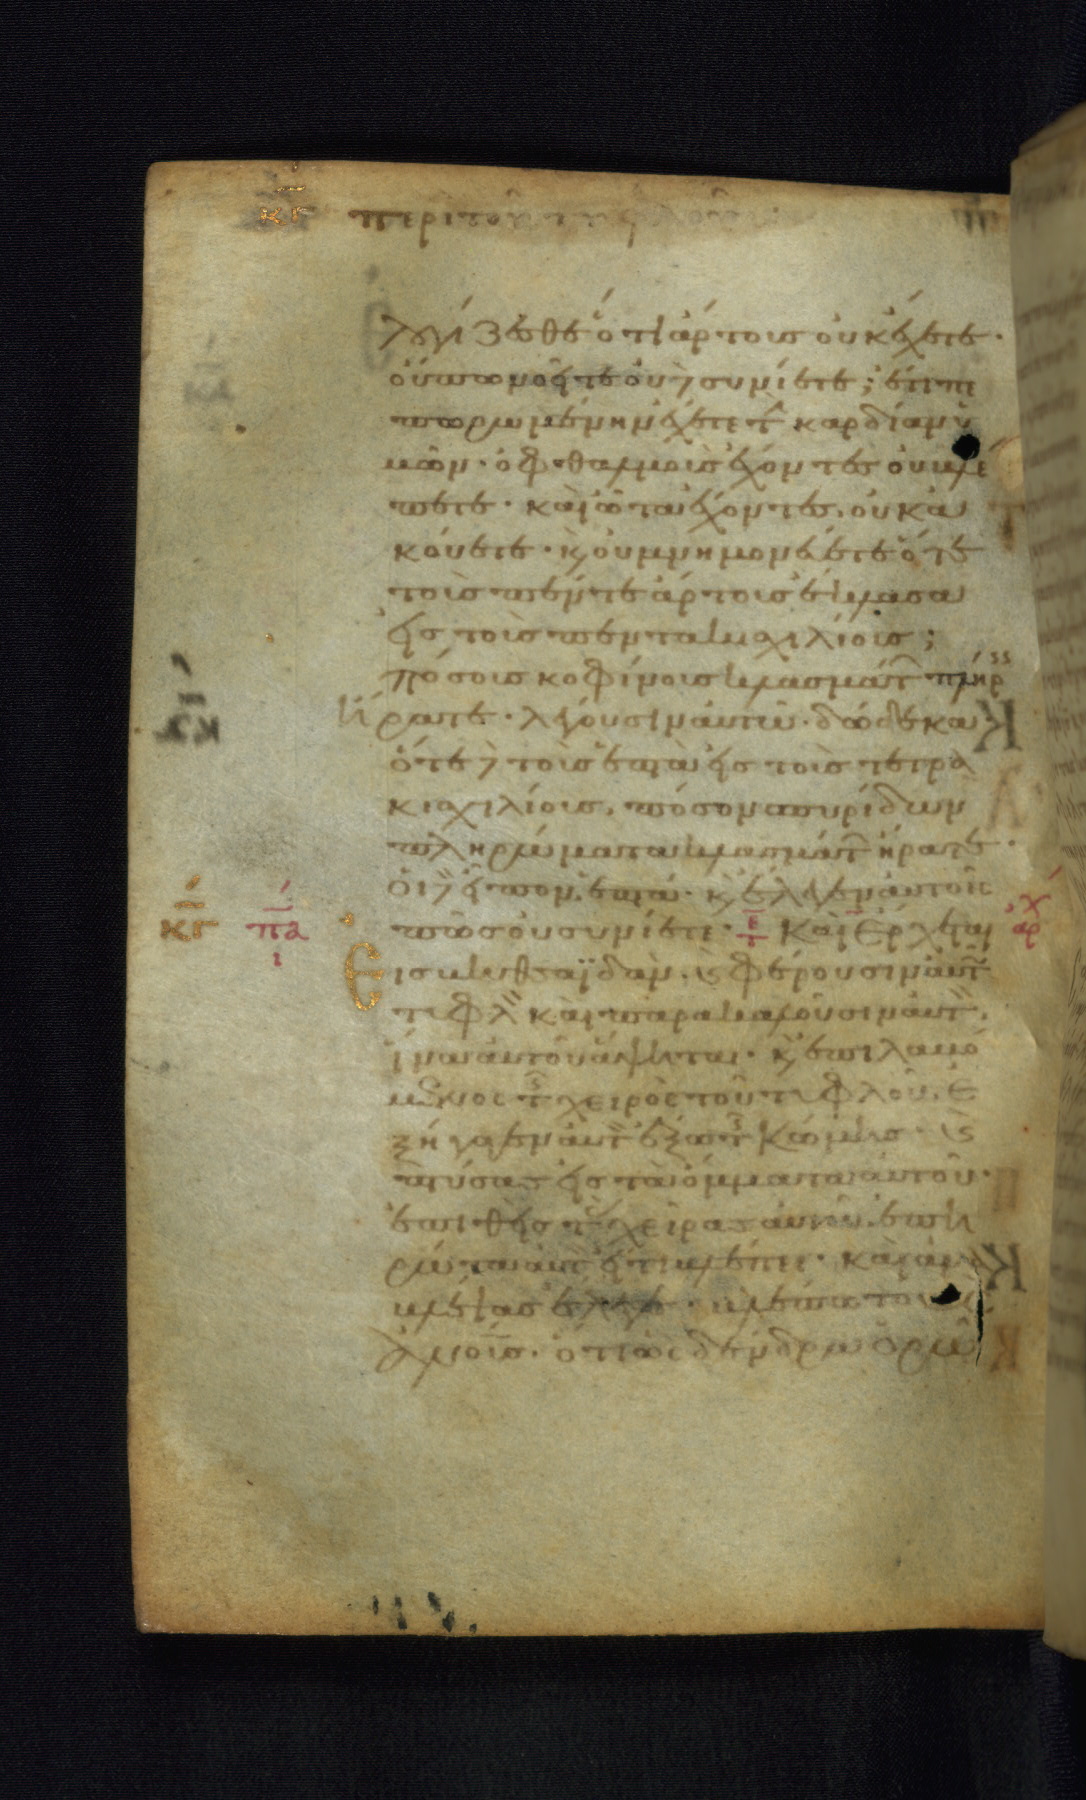 κγ περὶ τοῦ τυφλοῦ
λογίζεσθε ὅτι ἄρτους οὐκ ἔχετε·
οὔπω νοεῖτε οὐδὲ συνίετε; ἔτι πε
πωρωμένην ἔχετε τ καρδίαν ὑ
μῶν· ὀφθαλμοὺς ἔχοντες οὐ βλέ
πετε· καὶ ὦτα ἔχοντες, οὐκ ἀ
κούετε· κ οὐ μνημονεύετε ὅτε
τοὺς πέντε ἄρτους ἔκλασα
εἰς τοὺς πεντακισχιλίους;
πόσους κοφίνους κλασμάτ πλήρ
ἤρατε· λέγουσιν αὐτῶ· δώδεκα·
ὅτε δὲ τοὺς ἑπτὰ εἰς τοὺς τετρα
κισχιλίους, πόσων σπυρίδων
πληρώματα κλασμάτ ἤρατε·
οἱ δὲ εἶπον, ἑπτά· κ ἔλεγεν αὐτοῖς
κγ πα ι πῶς οὐ συνίετε· Καὶ ἔρχεται ἀρχ
Εἰς βηθσαϊδάν, κ φέρουσιν αὐτ
τυφλ καὶ παρακαλοῦσιν αὐτ,
ἵνα αὐτοῦ ἅψηται· κ ἐπιλαβό
μενος τ χειρὸς τοῦ τυφλοῦ, ἐ
ξήγαγεν αὐτ ἔξω τ κώμης· κ
πτύσας εἰς τὰ ὄμματα αὐτοῦ·
ἐπιθεὶς τ χεῖρας αὐτοῦ, ἐπη
ρώτα αὐτ εἴ τι βλέπει· καὶ ἀνα
βλέψας ἔλεγε· βλέπω τοὺς
ἀνους· ὅτι ὡς δένδρα ὁρῶ